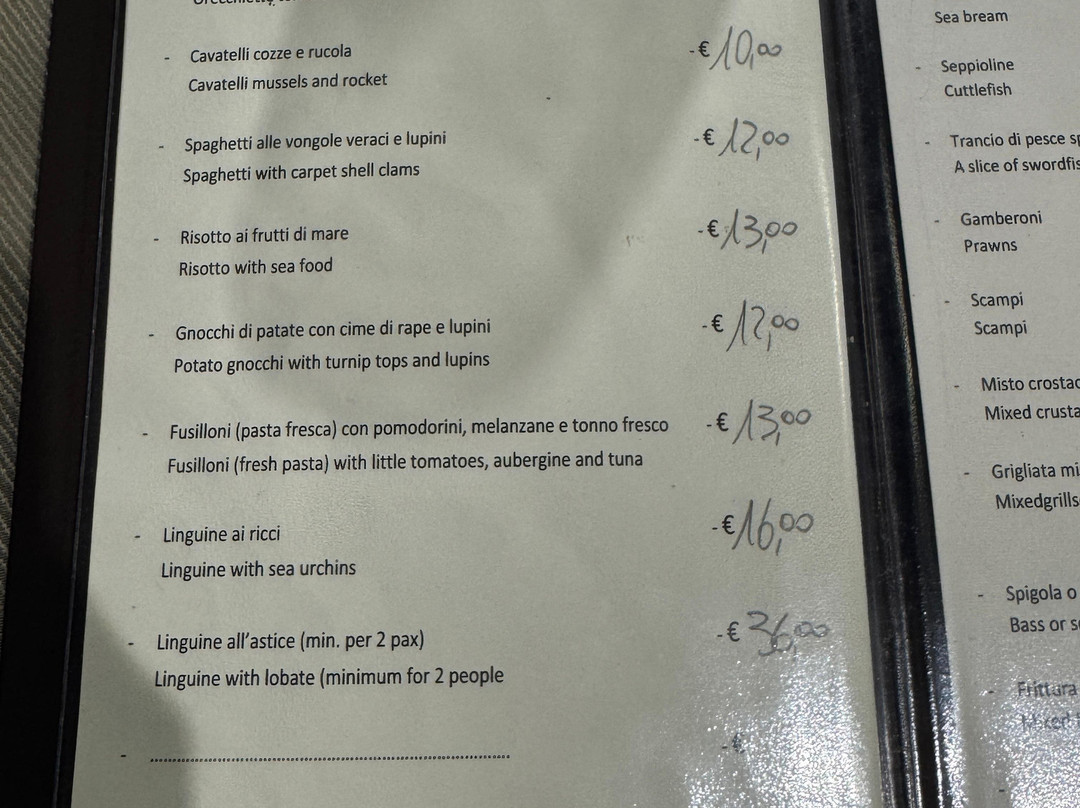 - Cavatelli cozze e rucola -€ 10,00
Cavatelli mussels and rocket
- Spaghetti alle vongole veraci e lupini -€ 12,00
Spaghetti with carpet shell clams
- Risotto ai frutti di mare -€ 13,00
Risotto with sea food
- Gnocchi di patate con cime di rape e lupini -€ 12,00
Potato gnocchi with turnip tops and lupins
- Fusilloni (pasta fresca) con pomodorini, melanzane e tonno fresco -€ 13,00
Fusilloni (fresh pasta) with little tomatoes, aubergine and tuna
- Linguine ai ricci -€ 16,00
Linguine with sea urchins
- Linguine all'astice (min. per 2 pax) -€ 36,00
Linguine with lobate (minimum for 2 people
- ........................................ -€
Sea bream
- Seppioline
Cuttlefish
- Trancio di pesce sp
A slice of swordfis
- Gamberoni
Prawns
- Scampi
Scampi
- Misto crostac
Mixed crusta
- Grigliata mi
Mixedgrills
- Spigola o
Bass or s
- Frittura
Mixed